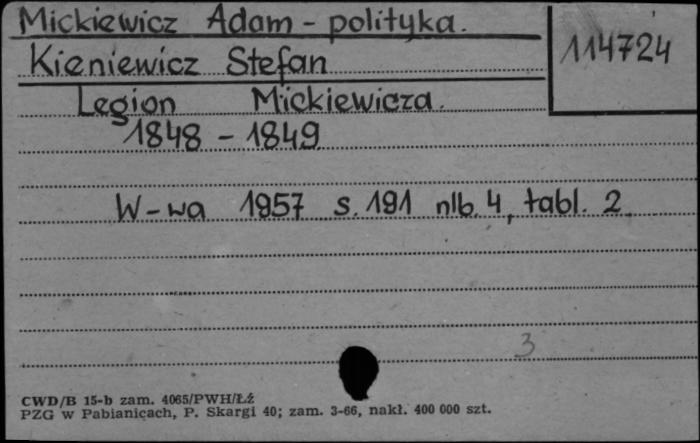 Mickiewicz Adam - polityka.
114724
Kieniewicz Stefan
Legion Mickiewicza.
1848 - 1849
W-wa 1957 s. 191 nlb. 4, tabl. 2.
3
CWD/B 15-b zam. 4065/PWH/Łź
PZG w Pabianicach, P. Skargi 40; zam. 3-66, nakł. 400 000 szt.